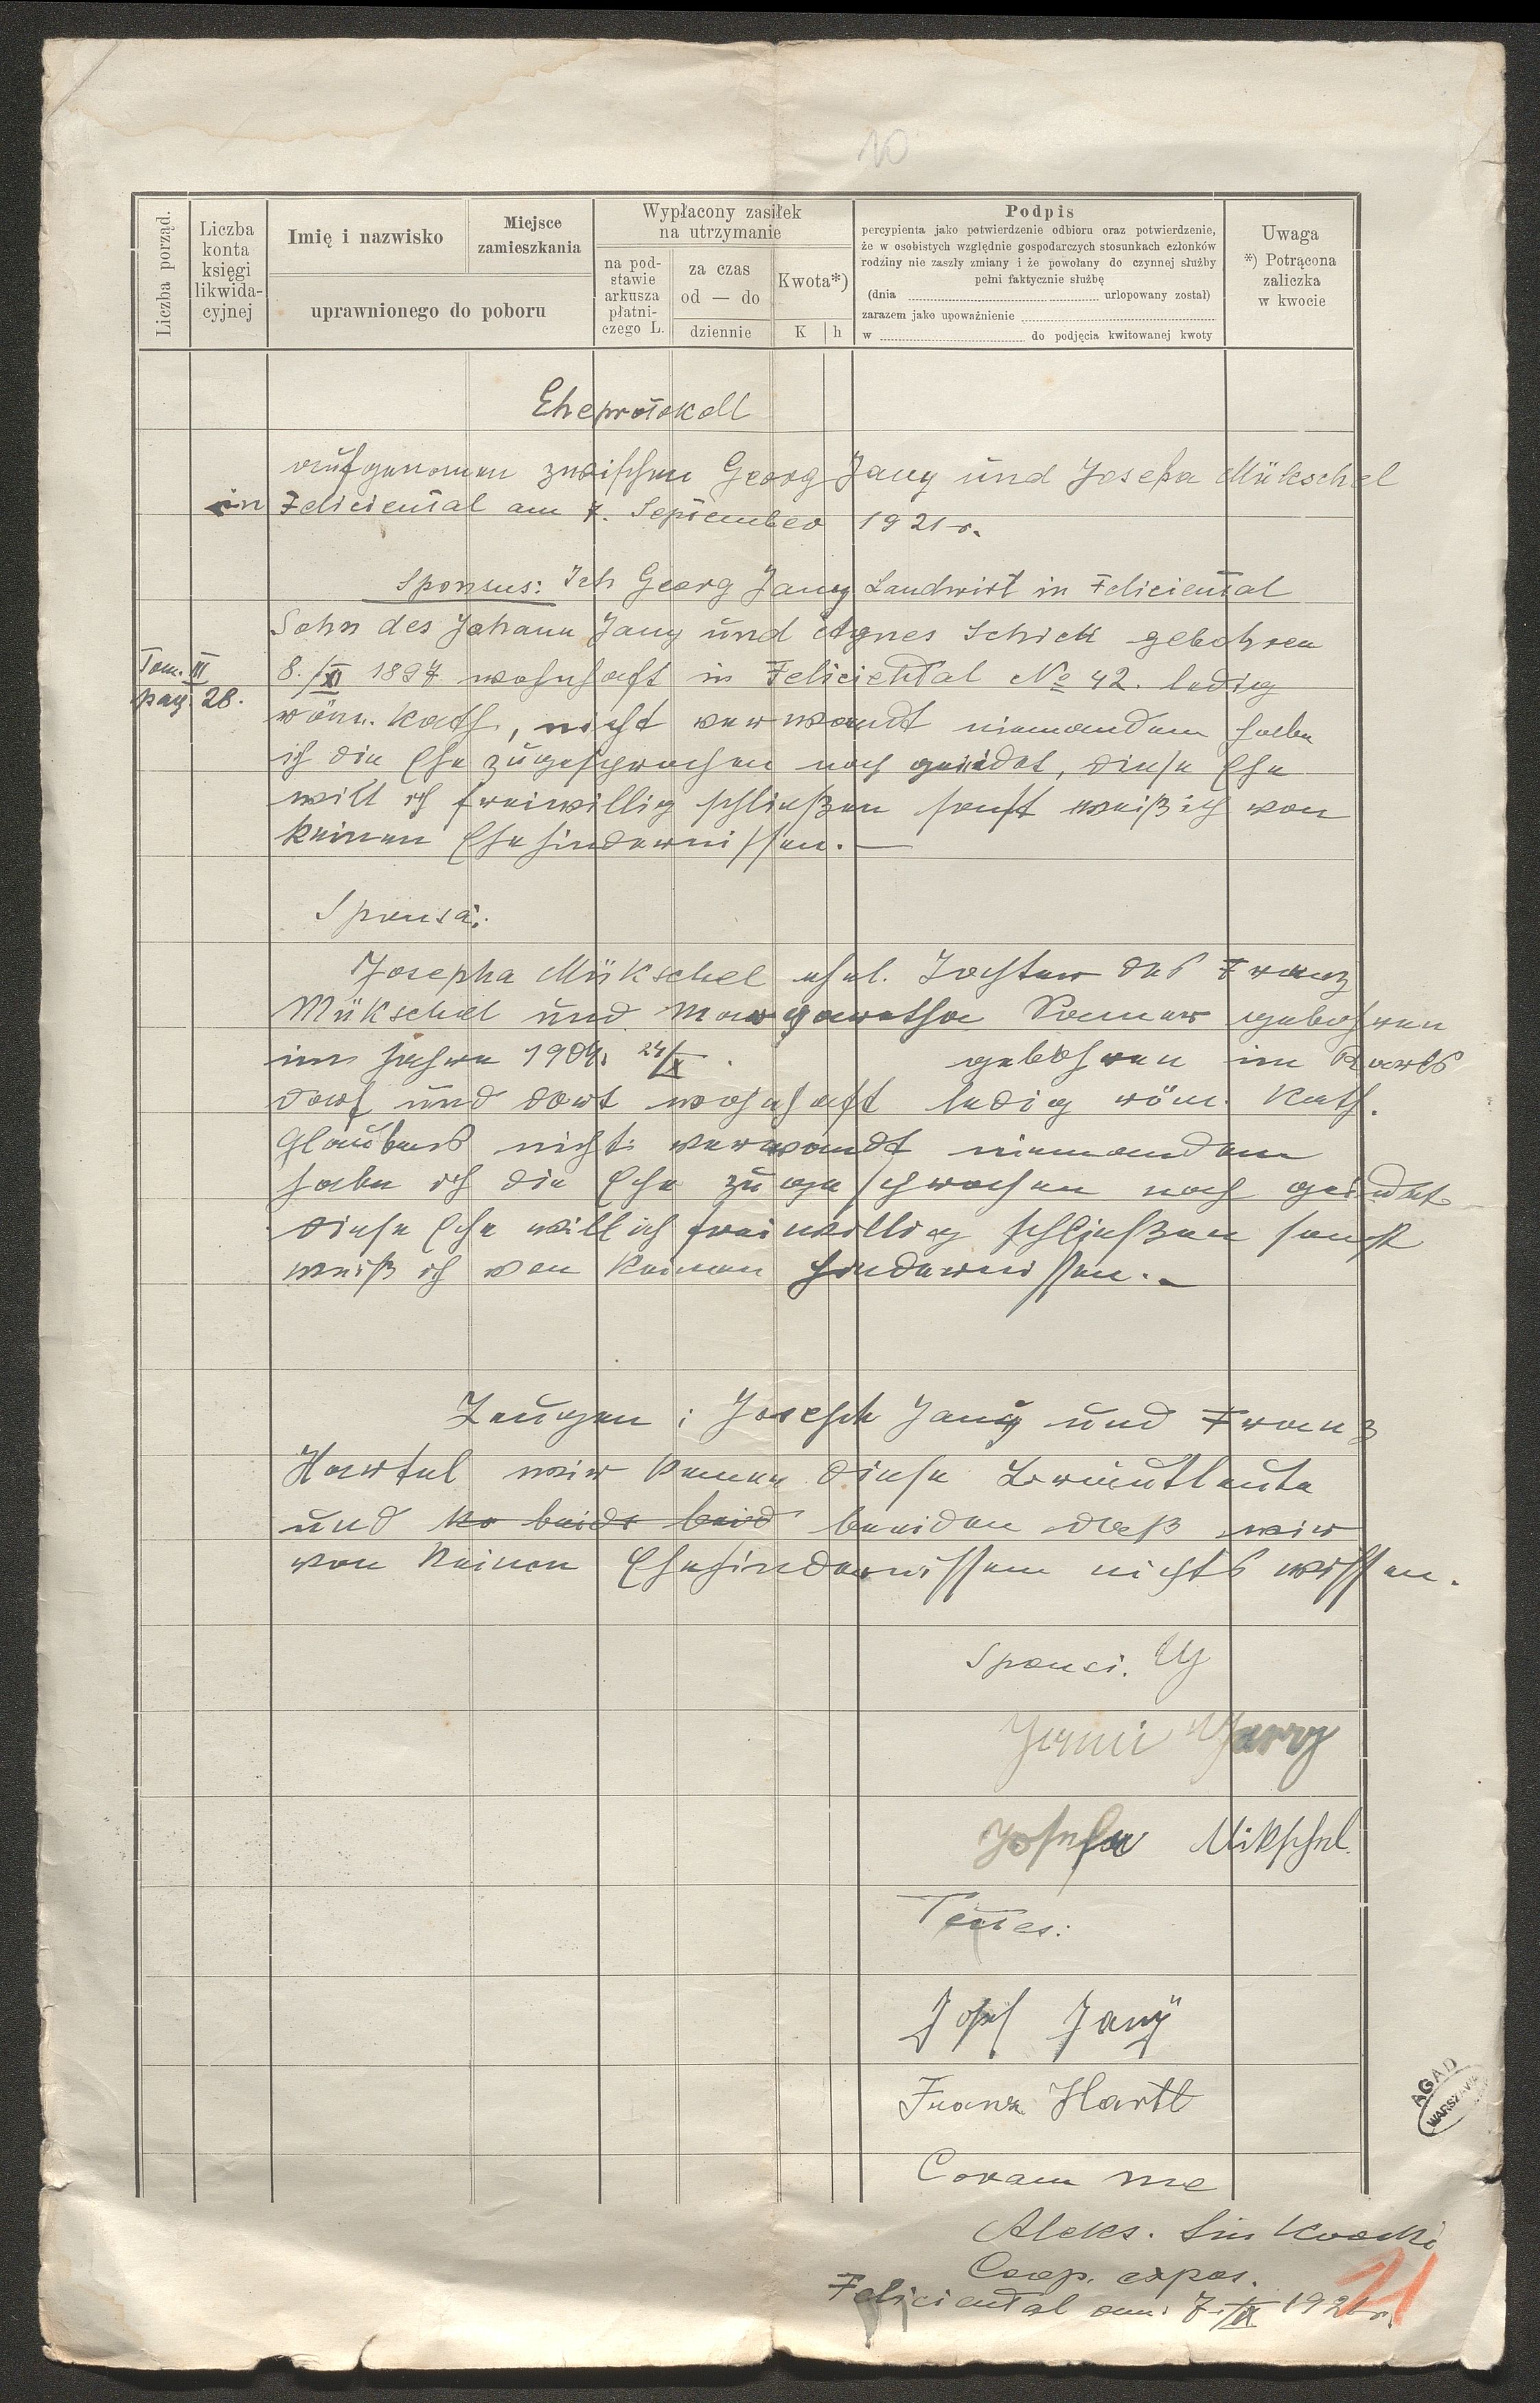 10
Liczba porząd.
Liczba konta księgi likwida-cyjnej
Imię i nazwisko
Miejsce zamieszkania
uprawnionego do poboru
Wypłacony zasiłek na utrzymanie
na pod-stawie arkusza płatni-czego L.
za czas od — do
dziennie
Kwota*)
K h
Podpis
percypienta jako potwierdzenie odbioru oraz potwierdzenie,
że w osobistych względnie gospodarczych stosunkach członków
rodziny nie zaszły zmiany i że powołany do czynnej służby
pełni faktycznie służbę
(dnia urlopowany został)
zarazem jako upoważnienie
w do podjęcia kwitowanej kwoty
Uwaga
*) Potrącona
zaliczka
w kwocie
Eheprotokoll
aufgenomen zwischen Georg Jany und Josefa Mükschel
in Feliciental am 7. September 1921 r.
Sponsus: Ich Georg Jany Landwirt in Feliciental
Sohn des Johann Jany und Agnes Schick gebohren
Tom. III
pag. 28.
8./XI 1897 wohnhaft in Feliciental No 42. ledig
röm. Kath, nicht verwandt niemandem habe
ich die Ehe zugesprochen noch geeidet, diese Ehe
will ich freiwillig schließen sonst weiß ich von
keinen Ehehindernissen.—
Sponsa:
Josepha Mükschel ehel. Tochter des Franz
Mükschel und Margaretha gebohren
im Jahre 1904. 24/X. gebohren im Karls
dorf und dort wohnhaft ledig röm. Kath.
Glaubens nicht verwandt niemandem
habe ich die Ehe zugesprochen noch geeidet
diese Ehe will ich freiwillig schließen sonst
weiß ich von keinen Hindernissen.–
Zeugen: Joseph Jany und Franz
Hartel wir kennen diese Brautleute
und beeiden daß wir
von keinen Ehehindernissen nichts wissen.
Sponsi.
Jany
Josefa Mikschel.
Testes:
Josef Jany
Franz Hartl
Coram me
Aleks.
Coop. expos.
Feliciental am: 7./IX 1921 r.
21
AGAD
WARSZAWA